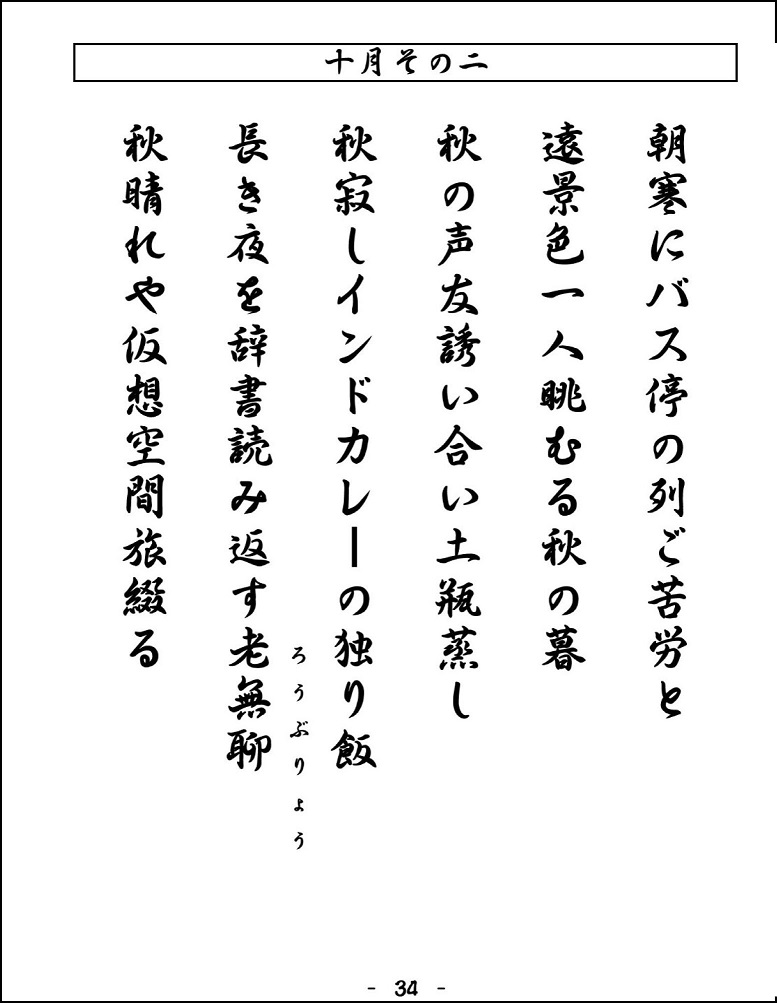 十月その二
朝寒にバス停の列ご苦労と
遠景色一人眺むる秋の暮
秋の声友誘い合い土瓶蒸し
秋寂しインドカレーの独り飯
長き夜を辞書読み返す老無聊
ろうぶりょう
秋晴れや仮想空間旅綴る
- 34 -